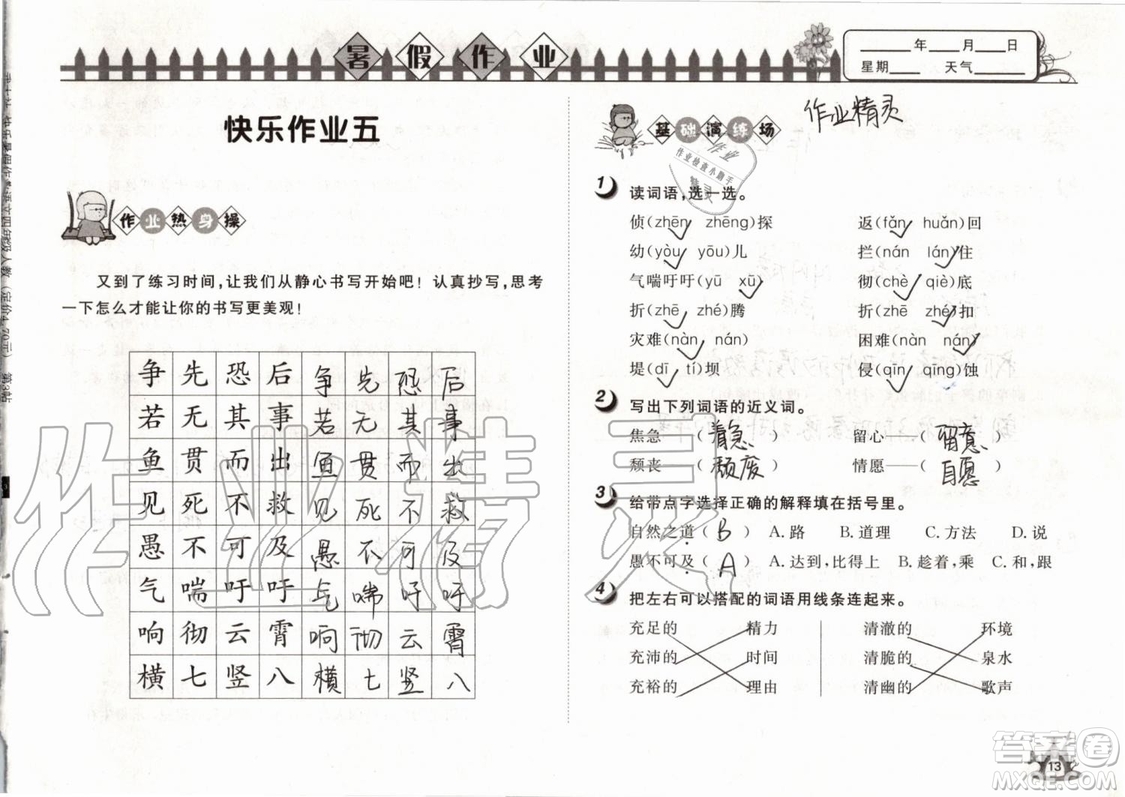 暑假作业
____年____月____日
星期____ 天气____
快乐作业五
作业热身操
又到了练习时间,让我们从静心书写开始吧!认真抄写,思考
一下怎么才能让你的书写更美观!
争先恐后争先恐后
若无其事若无其事
鱼贯而出鱼贯而出
见死不救见死不救
愚不可及愚不可及
气喘吁吁气喘吁吁
响彻云霄响彻云霄
横七竖八横七竖八
基础演练场
作业精灵
1 读词语,选一选。
侦(zhēn zhēng)探 返(fǎn huǎn)回
幼(yòu yōu)儿 拦(nán lán)住
气喘吁吁(yū xū) 彻(chè qiè)底
折(zhē zhé)腾 折(zhē zhé)扣
灾难(nàn nán) 困难(nàn nán)
堤(dī tí)坝 侵(qīn qīng)蚀
2 写出下列词语的近义词。
焦急——(着急) 留心——(留意)
颓丧——(颓废) 情愿——(自愿)
3 给带点字选择正确的解释填在括号里。
自然之道(B) A.路 B.道理 C.方法 D.说
愚不可及(A) A.达到,比得上 B.趁着,乘 C.和,跟
4 把左右可以搭配的词语用线条连起来。
充足的 精力 清澈的 环境
充沛的 时间 清脆的 泉水
充裕的 理由 清幽的 歌声
13
作业精灵
答案圈
MXQE.COM